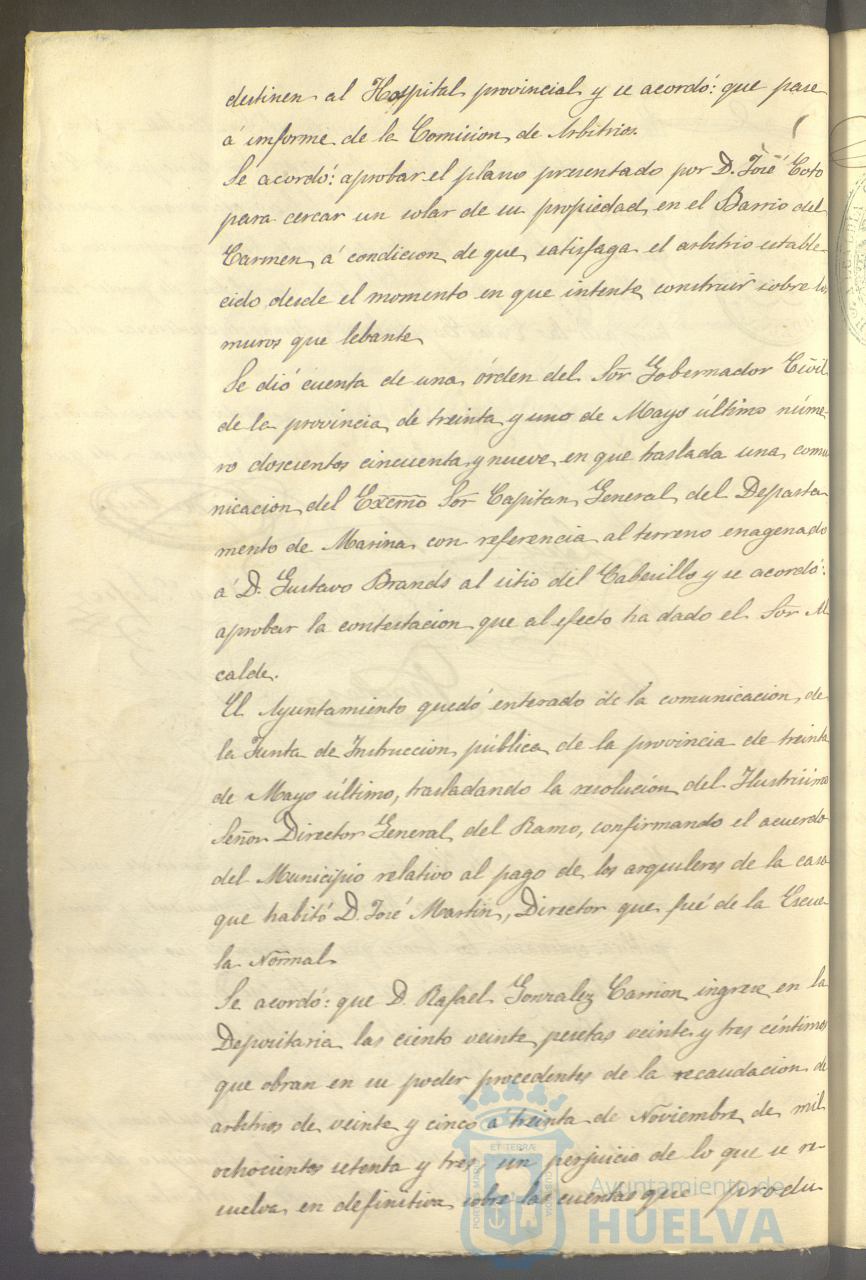 destinen al Hospital provincial y se acordó: que pase
á informe de la Comision de Arbitrios.
Se acordó: aprobar el plano presentado por D. José Coto
para cercar un solar de su propiedad en el Barrio del
Carmen, á condicion de que satisfaga el arbitrio estable-
cido desde el momento en que intente construir sobre los
muros que lebante
Se dió cuenta de una órden del Sor Gobernador Civil
de la provincia de treinta y uno de Mayo último núme-
ro doscientos cincuenta y nueve en que traslada una comu
nicacion del Excmo Sor Capitan General del Departa
mento de Marina con referencia al terreno enagenado
á D. Gustavo Brands al sitio del Cabesillo y se acordó:
aprobar la contestacion que al efecto ha dado el Sor Al
calde.
El Ayuntamiento quedó enterado de la comunicacion de
la Junta de Instruccion pública de la provincia de treinta
de Mayo último, trasladando la resolucion del Ilustrisimo
Señor Director General del Ramo, confirmando el acuerdo
del Municipio relativo al pago de los arquileres de la casa
que habitó D. José Martin, Director que fué de la Escue
la Normal
Se acordó: que D. Rafael Gonzalez Carrion ingrese en la
Depositaria las ciento veinte pesetas veinte y tres céntimos
que obran en su poder procedentes de la recaudacion de
arbitrios de veinte y cinco á treinta de Noviembre de mil
ochocientos setenta y tres, sin perjuicio de lo que se re-
suelva en definitiva sobre las cuentas que produ
Ayuntamiento de
HUELVA